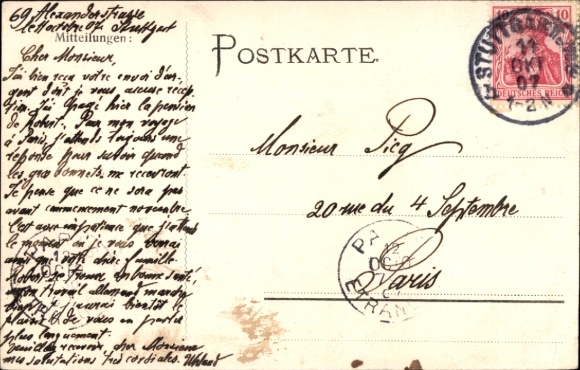 69 Alexanderstrasse
le 11 octobre 07 Stuttgart
Mitteilungen:
Cher Monsieur,
J'ai bien reçu votre envoi d'ar-
gent dont je vous accuse récep-
tion. J'ai payé hier la pension
de Robert. Pour mon voyage
à Paris j'attends toujours une
réponse pour savoir quand
les gros bonnets me recevront.
Je pense que ce ne sera pas
avant commencement novembre.
C'est avec impatience que j'attends
le moment où je vous
ainsi que votre chère famille.
Robert se trouve en bonne santé,
mon travail allemand marche
j'aurai bientôt le
plaisir de vous en parler
plus longuement.
Veuillez recevoir, cher Monsieur
mes salutations très cordiales. Uhland
POSTKARTE.
Monsieur Picq
20 rue du 4 Septembre
Paris
10
DEUTSCHES REICH
STUTTGART
11
OKT
07
1-2 N
PA
12
OC
ETRAN